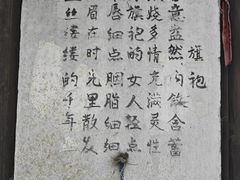 旗袍
意盎然内敛含蓄
多情充满灵性
旗袍的女人轻点
唇细点胭脂细细
眉在时光里散发
丝缕缕的千年